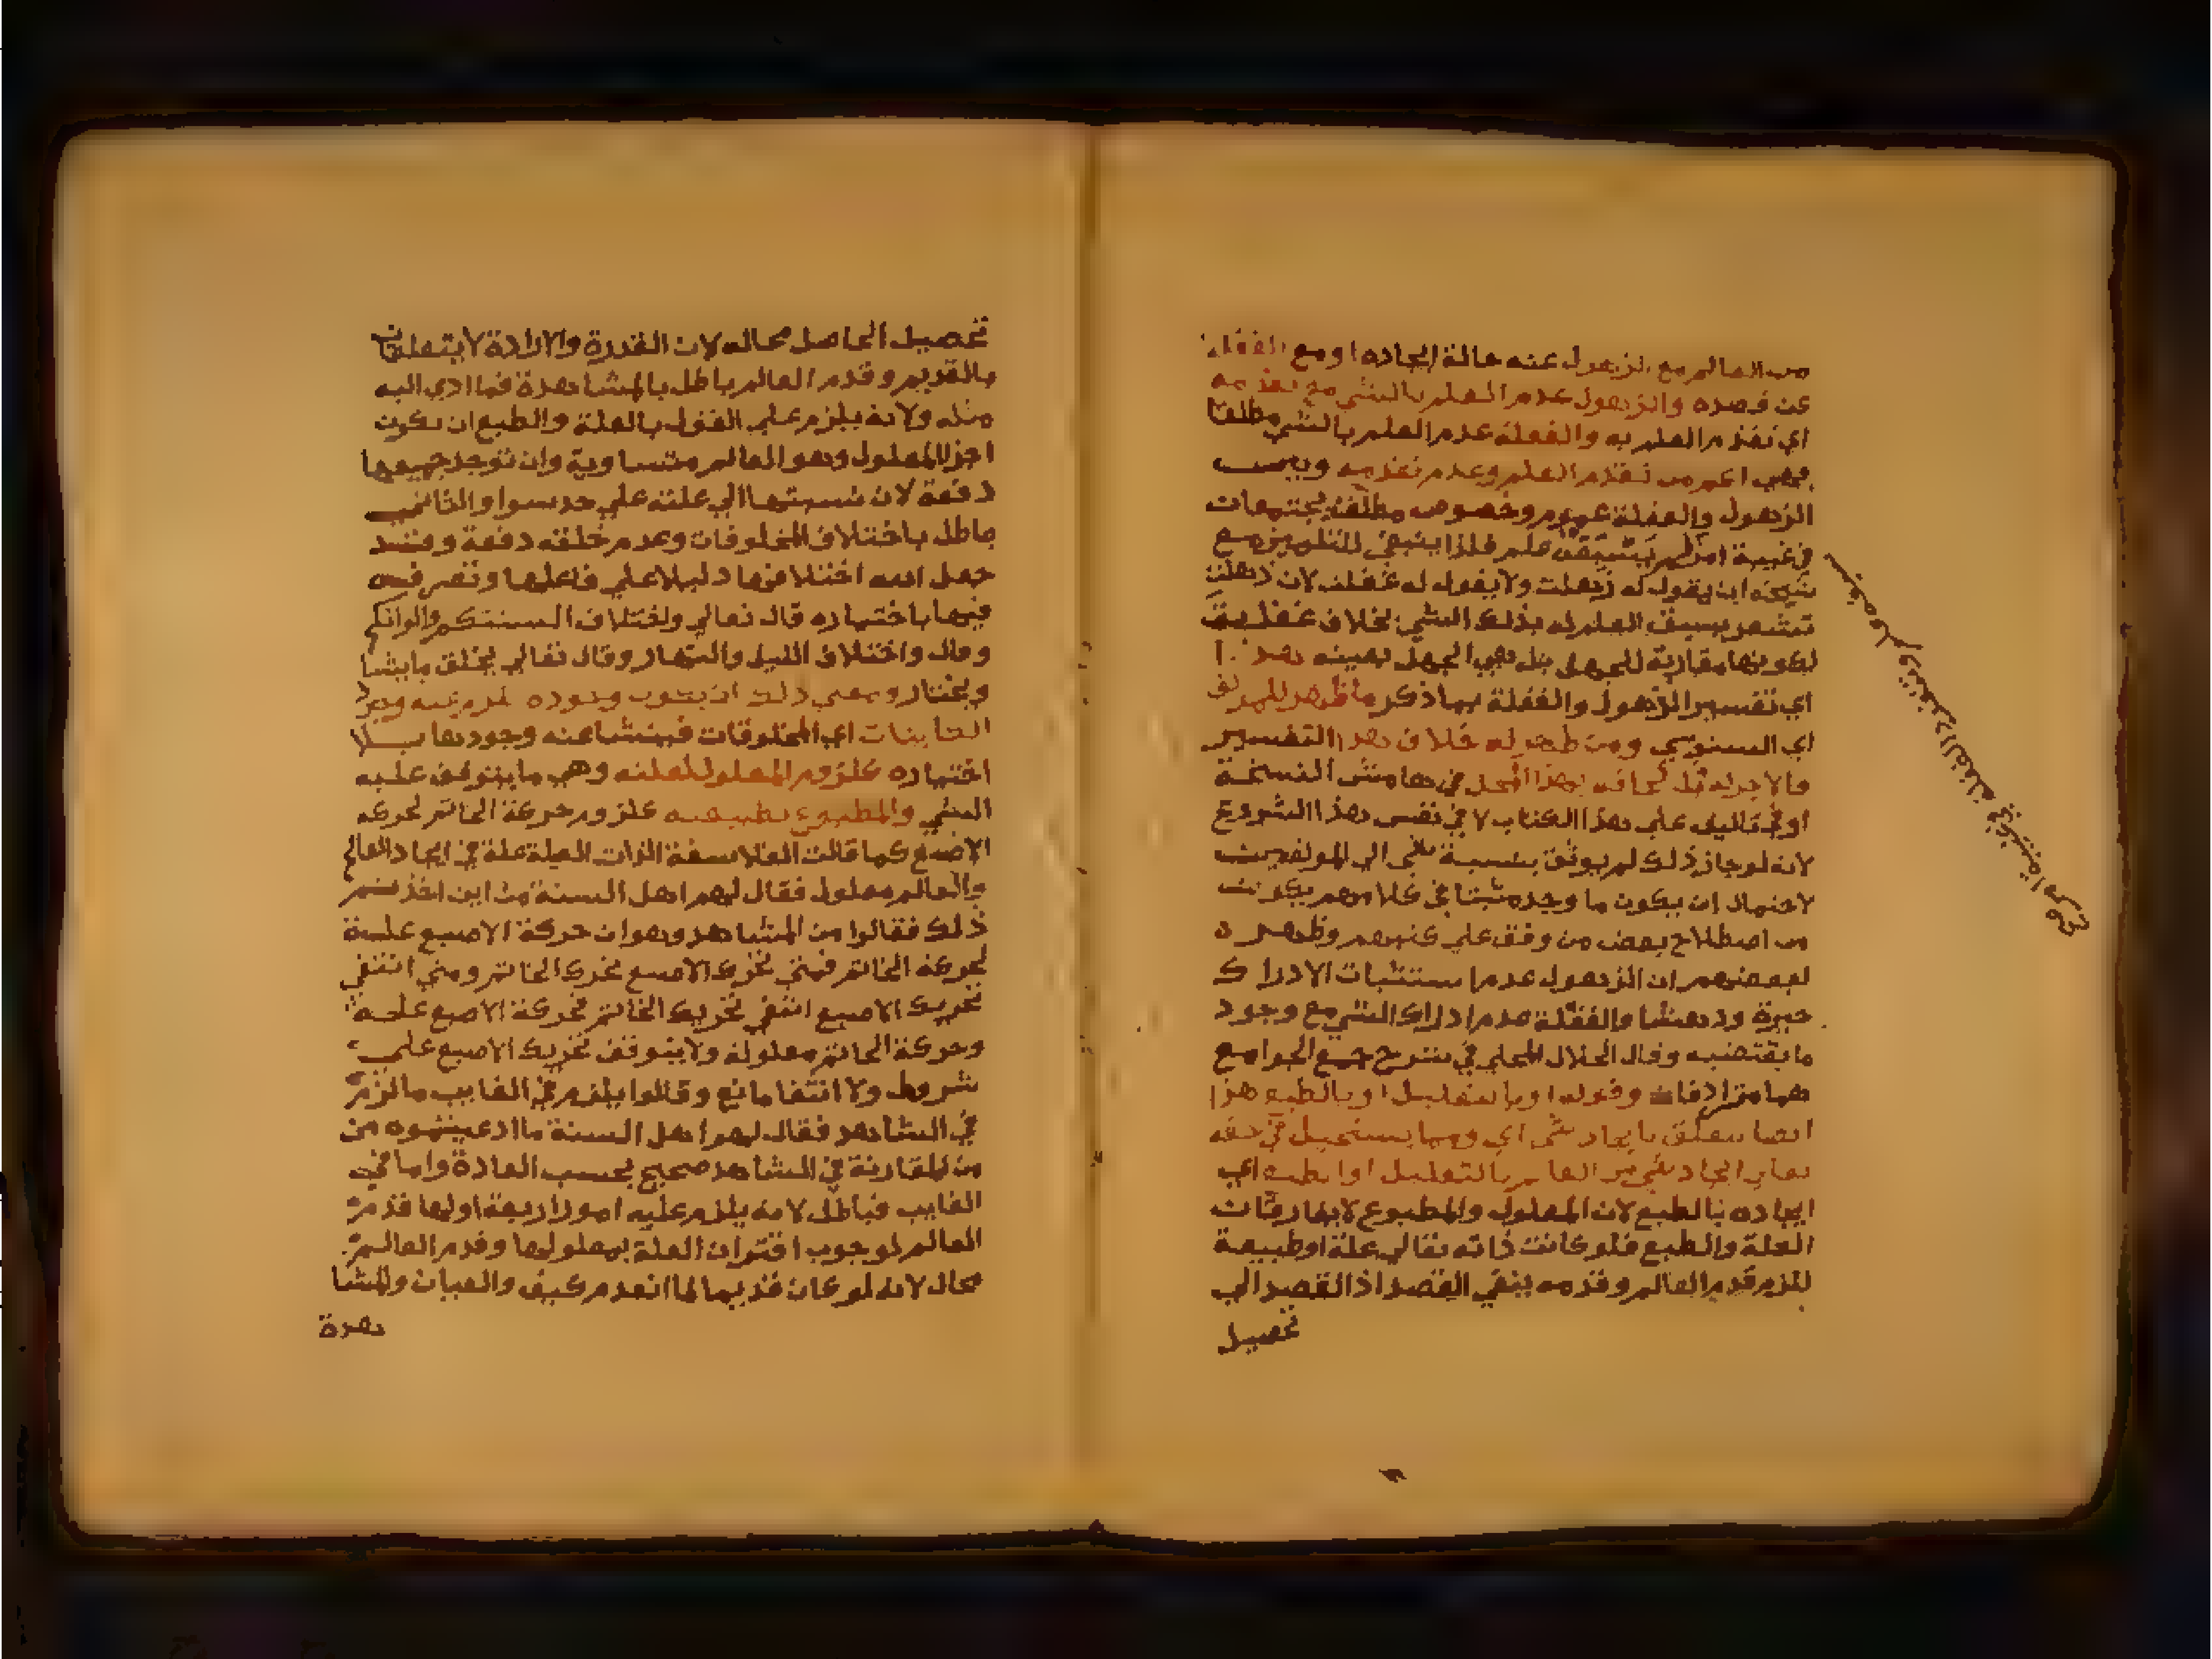 من العالم مع الذهول عنه حالة ايجاده او مع الغفلة
عن قصده والذهول عدم العلم بالشي مع تقدمه
اي تقدم العلم به والغفلة عدم العلم بالشي مطلقا
فهي اعم من تقدم العلم وعدم تقدمه وبين
الذهول والغفلة عموم وخصوص مطلق يجتمعان
في غيبة امر لم علم فلذا ينبغي للتلميذ مع
شيخه ان يقول له ذهلت ولا يقول له غفلت لان ذهلت
تشعر بسبق العلم له بذلك الشي بخلاف غفلت
لكونها مقاربة للجهل بل هي الجهل بعينه هذا
اي تفسير الذهول والغفلة بما ذكر ما ظهر للمولف
اي السنوسي ومن ظهر له خلاف هذا التفسير
هذا المحل في هامش النسخة
او في تاليف علي هذا الكتاب لا في نفس هذا الشروع
لانه لو جاز ذلك لم يوثق بنسبة شي الي المولفين
لاحتمال ان يكون ما وجد مثبتا في كلامهم يكون
من اصطلاح بعض من وقف علي كتبهم وظهر
لبعضهم ان الذهول عدم استثبات الادراك
حيرة ودهشا والغفلة عدم ادراك الشي مع وجود
ما يقتضيه وقال الجلال المحلي في شرح جمع الجوامع
هما مترادفان وقوله او بالتعليل او بالطبع هذا
ايضا متعلق بايجاد شي اي ومما يستحيل في حقه
تعالي ايجاد شي من العالم بالتعليل او بالطبع اي
ايجاده بالطبع لان المعلول والمطبوع لا يفارقان
العلة والطبع فلو كانت ذاته تعالي علة او طبيعة
للزم قدم العالم وقدمه ينفي القصد اذ القصد الي
تحصيل
تحصيل الحاصل محال لان القدرة والارادة لا يتعلقان
بالقديم وقدم العالم باطل بالمشاهدة فما ادي اليه
مثله ولانه يلزم علي القول بالعلة والطبع ان تكون
اجزا المعلول وهو العالم متساوية وان توجد جميعها
دفعة لان نسبتها الي علته علي حد سوا والتالي
باطل باختلاف المخلوقات وعدم خلقه دفعة وقد
جعل الله اختلافها دليلا علي فاعلها وتصرفه
فيها باختياره قال تعالي واختلاف السنتكم والوانكم
وقال واختلاف الليل والنهار وقال تعالي يخلق ما يشا
ويختار ومعني ذلك ان يكون وجوده
الكاينات اي المخلوقات فينشا عنه وجودها بلا
اختياره كلزوم المعلول لعلته وهي ما يتوقف عليه
الشي والمطبوع بطبيعته كلزوم حركة الخاتم لحركة
الاصبع كما قالت الفلاسفة الذات العلية علة في ايجاد العالم
والعالم معلول فقال لهم اهل السنة من اين اخذتم
ذلك فقالوا من المشاهد وهو ان حركة الاصبع علة
لحركة الخاتم فمتي تحرك الاصبع تحرك الخاتم ومتي انتفي
تحريك الاصبع انتفي تحريك الخاتم فحركة الاصبع علة
وحركة الخاتم معلولة ولا يتوقف تحريك الاصبع علي
شروط ولا انتفا مانع وقالوا يلزم في الغايب ما لزم
في الشاهد فقال لهم اهل السنة ما ادعيتموه من
من المقارنة في المشاهد صحيح بحسب العادة واما في
الغايب فباطل لانه يلزم عليه امور اربعة اولها قدم
العالم لوجوب اقتران العلة بمعلولها وقدم العالم
محال لانه لو كان قديما لما انعدم كيف والعيان والمشا
هدة